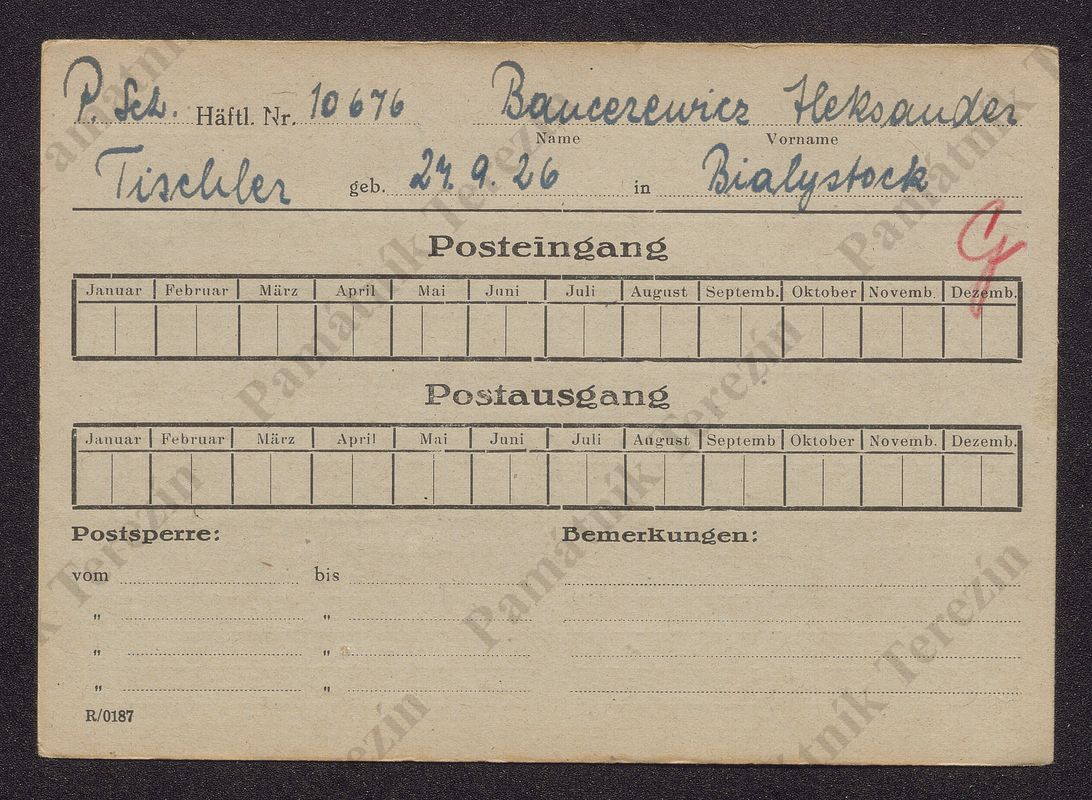 P. Sch. Häftl. Nr. 10676 Bancerewicz Aleksander
Name Vorname
Tischler geb. 27.9.26 in Bialystock
Posteingang
Januar Februar März April Mai Juni Juli August Septemb. Oktober Novemb. Dezemb.
Postausgang
Januar Februar März April Mai Juni Juli August Septemb Oktober Novemb. Dezemb.
Postsperre: Bemerkungen:
vom bis
" "
" "
" "
R/0187
Památník Terezín